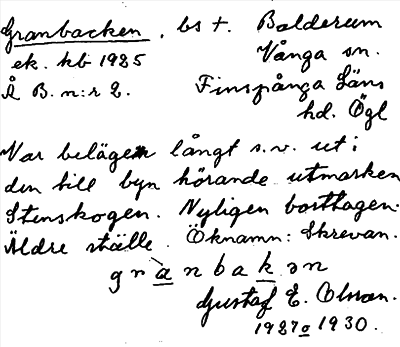 Granbacken, bs t. Balderum
ek. kb 1925 Vånga sn.
Å B. n:r 2. Finspånga Läns
hd. Ögl
Var belägen långt s.v. ut i
den till byn hörande utmarken
Stenskogen. Nyligen borttagen.
Äldre ställe. Öknamn: Skrevan.
grànbakən
Gustaf E. Olsson.
1927 o 1930.